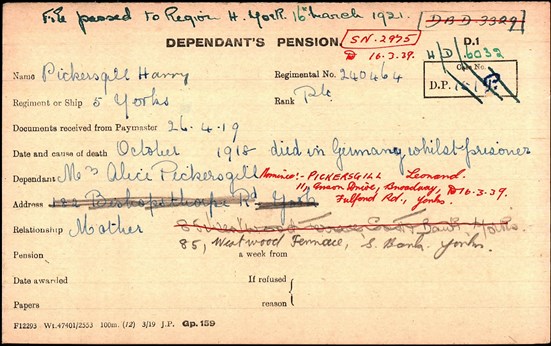 File passed to Region H. York. 16 March 1921.
DBD 3329
DEPENDANT'S PENSION
SN. 2975
16.3.39.
D.1
H D 6032
Case No.
D.P.
Name Pickersgill Harry
Regimental No. 240464
Regiment or Ship 5 Yorks
Rank Pte
Documents received from Paymaster 26.4.19
Date and cause of death October 1918 died in Germany whilst prisoner
Dependant Mrs Alice Pickersgill
Nominee:- PICKERSGILL Leonard.
11, Anson Drive, Broadway, 16.3.39.
Fulford Rd., Yorks.
Address 122 Bishopthorpe Rd York
Relationship Mother
85, Westwood Terrace, S. Bank. Yorks.
Pension a week from
Date awarded If refused
Papers reason
F12293 Wt.47401/2553 100m. (12) 3/19 J.P. Gp. 159